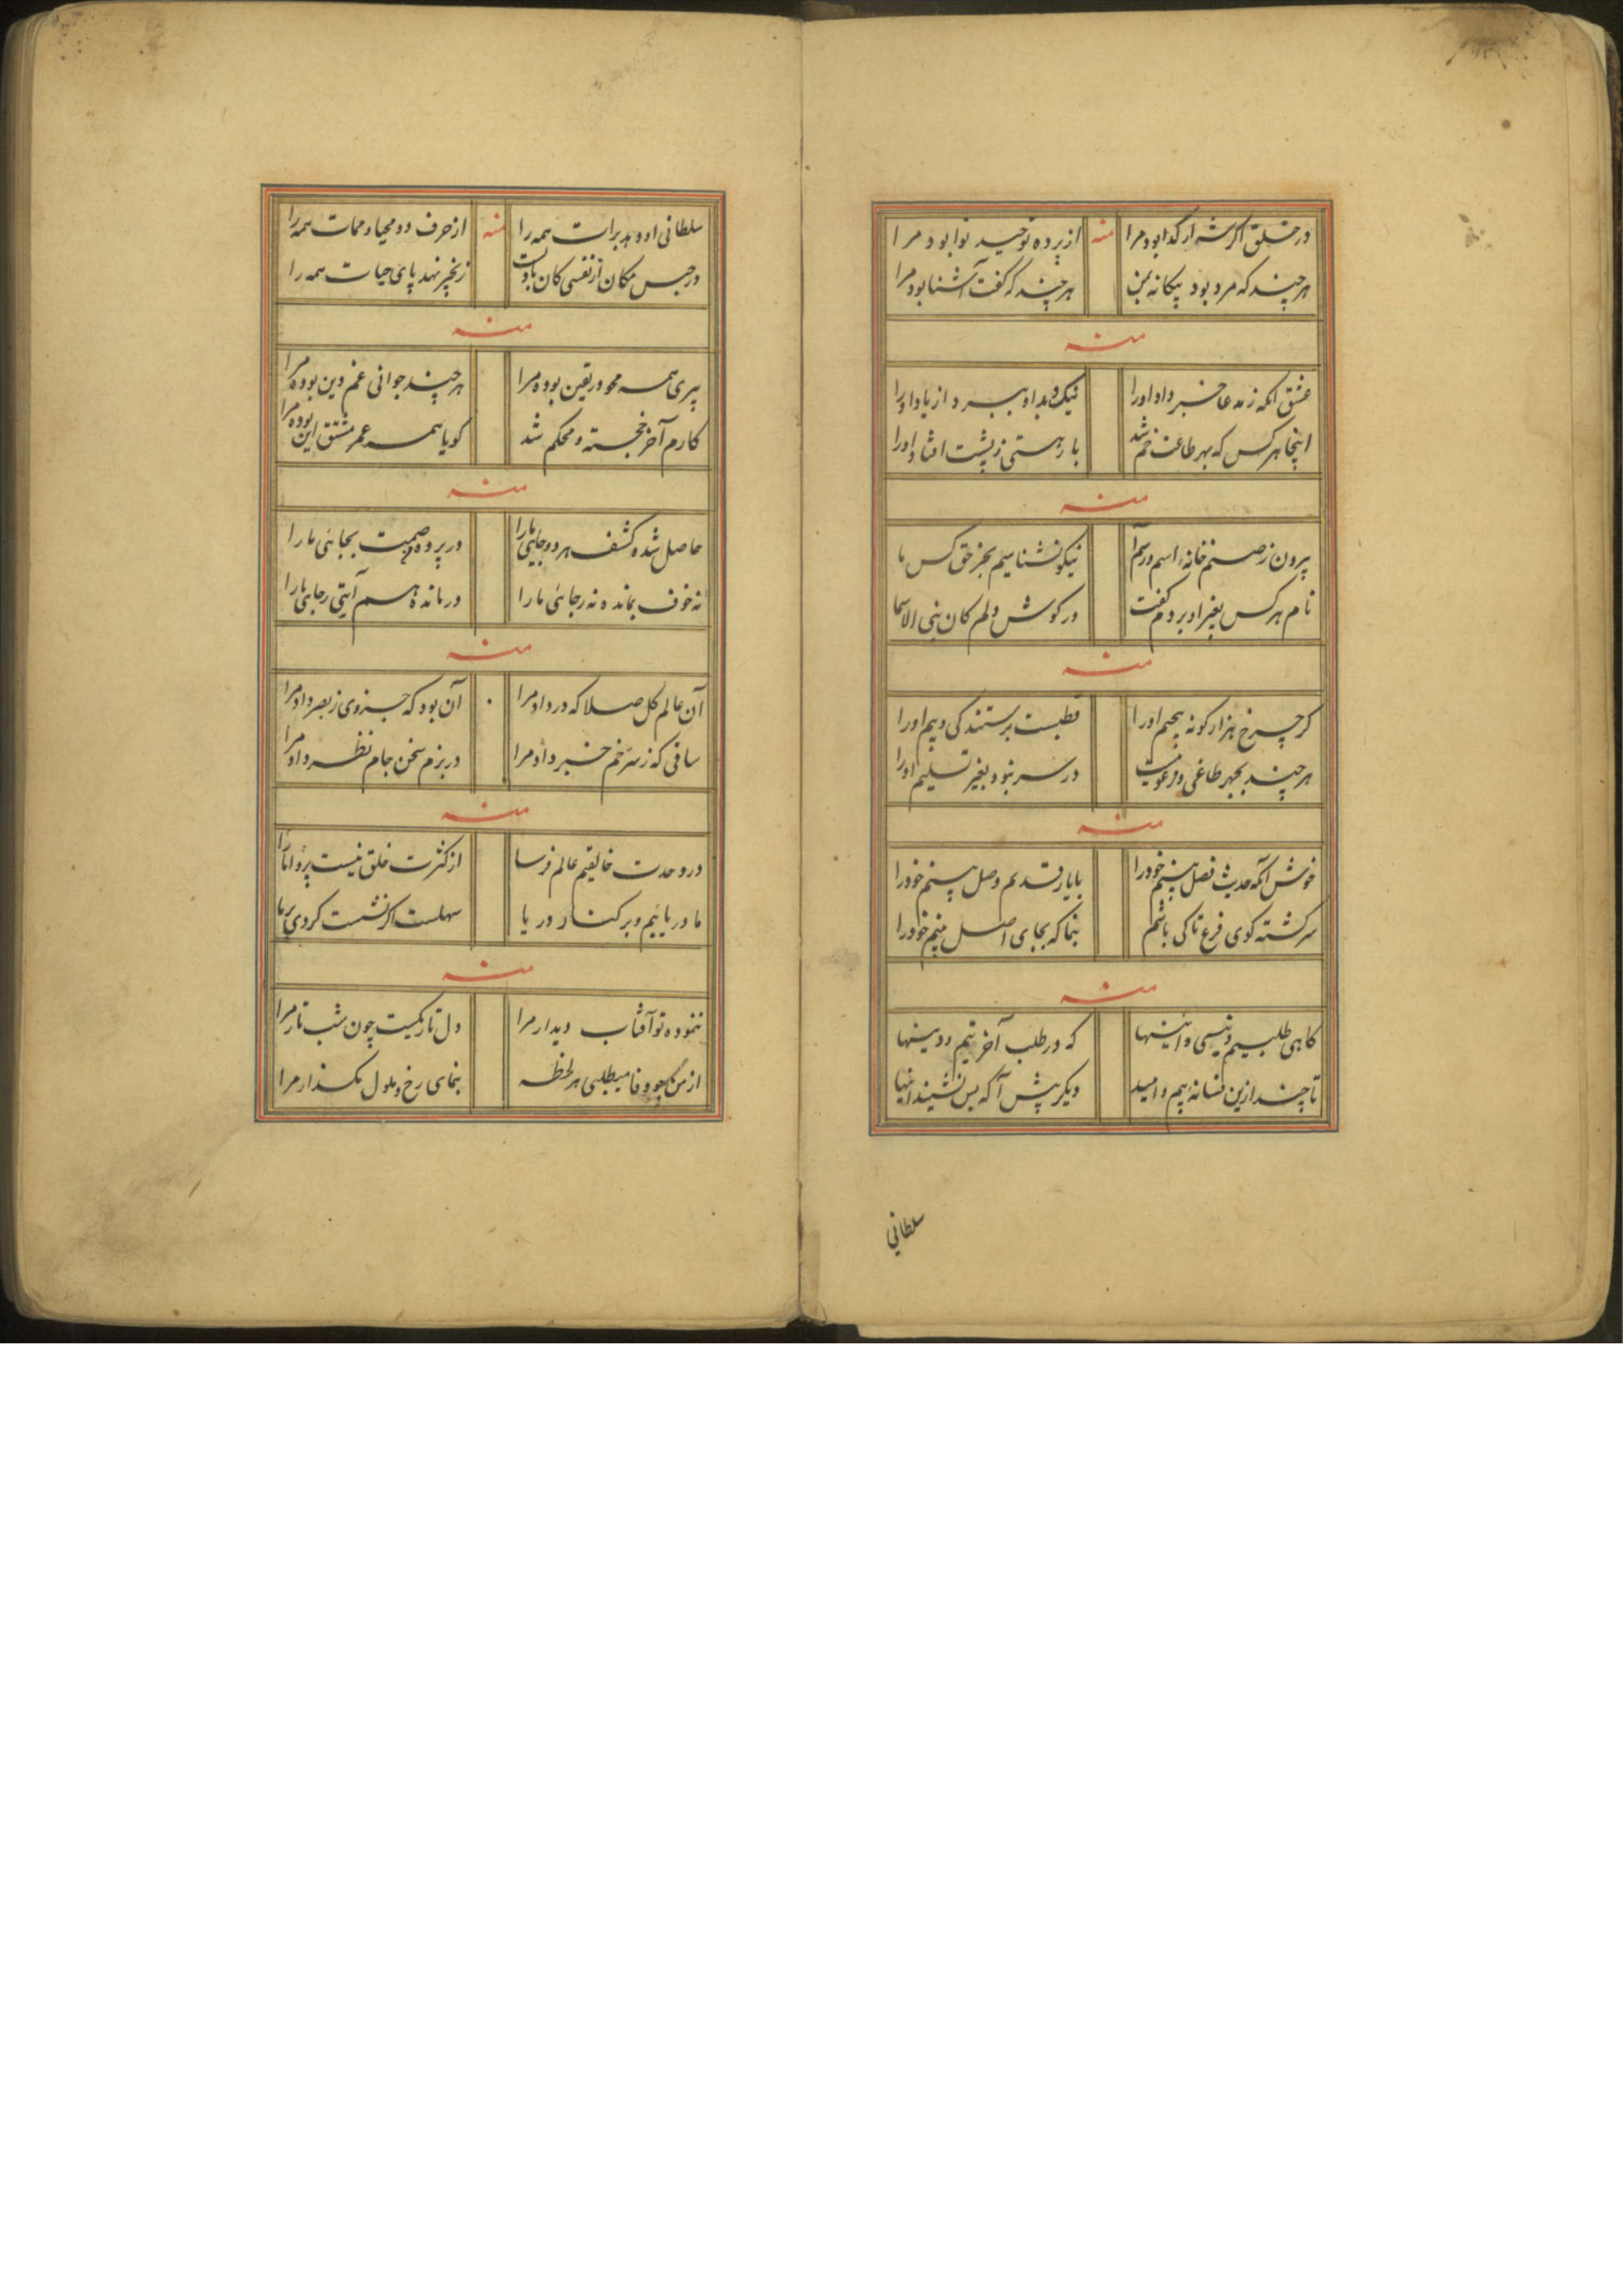 در خلق اگر شه ار گدا بود مرا منه از پرده توحید نوا بود مرا
هر چند که مرد بود بیکانه بمن هر چند که گفت آشنا بود مرا
منه
عشق انکه ز مدعا خبر داد اورا نیک و بد او ببرد از یاد اورا
اینجا هر کس که بهر طاعت خم شد بار هستی ز پشت افتاد اورا
منه
بیرون ز صنم خانه اسم و رسم نیکو نشناسیم بجز حق کس ما
نام هر کس بغیر او بردم گفت در کوش دلم کان بنی الاسما
منه
کر چرخ هزار کونه بیچم اورا قطبست برستندکی و بیم اورا
هر چند بجهر طاغی و فرعونیست در سر نبود بغیر تسلیم اورا
منه
خوش آنکه حدیث فصل بینم خودرا با یار قدیم وصل بینم خودرا
سرکشته کوی فرع تا کی باشم بنما که بجای اصل بینم خودرا
منه
کاهی طلبیم و نیسی و اینها که در طلب آخرتیم و دینها
تا چند ازین فسانه بیم و امید دیکر پیش آ که پس نشیند اینها
سلطانی
سلطانی او دهد برات همه را منه از حرف دو محیا و ممات همه را
در حبس مکان از نفسی کان باد است زنجیر نهد پای حیات همه را
منه
پیری همه محو در یقین بوده مرا هر چند جوانی غم دین بوده مرا
کارم آخر خجسته و محکم شد کویا همه عمر مشق این بوده مرا
منه
حاصل شده کشف هر دو جایی مارا در پرده بجایی مارا
نه خوف بمانده نه رجائی مارا در مانده هم آیتی رجایی مارا
منه
آن عالم کل صلا که در داد مرا آن بود که جزوی ز بصر داد مرا
ساقی که ز سر خم خبر داد مرا در بزم سخن جام نظر داد مرا
منه
در وحدت خالقیم عالم فرسا از کثرت خلق نیست پروا مارا
ما دریاییم و بر کنار دریا سهلست اکر نشست کردی بر ما
منه
ننموده تو آفتاب دیدار مرا دل تاریکیست چون شب تار مرا
از من وفا میطلبی هر لحظه بنمای رخ و ملول مکذار مرا